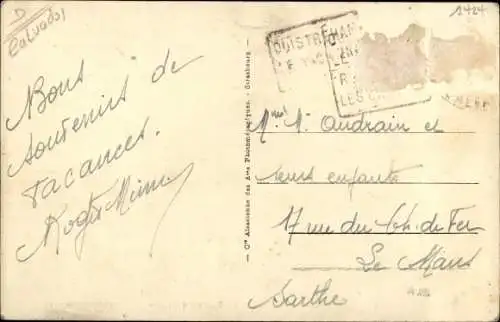 D
Calvados
2424
OUISTREHAM
Bons
souvenirs de
vacances.
Roger
Cie Alsacienne des Arts Photomécaniques. - Strasbourg -
Mme M. Oudrain et
leurs enfants
17 rue du Ch. de Fer
Le Mans
Sarthe